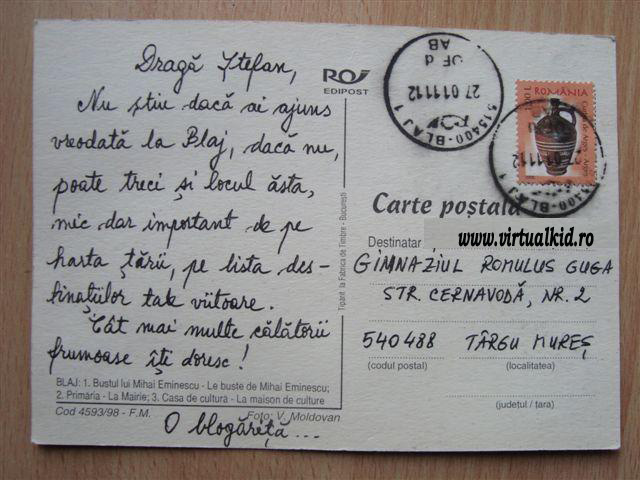 Dragă Ștefan,
Nu știu dacă ai ajuns
vreodată la Blaj, dacă nu,
poate treci și locul ăsta,
mic dar important de pe
harta țării, pe lista des-
tinațiilor tale viitoare.
Cât mai multe călătorii
frumoase îți doresc!
BLAJ: 1. Bustul lui Mihai Eminescu - Le buste de Mihai Eminescu;
2. Primăria - La Mairie; 3. Casa de cultură - La maison de culture
Cod 4593/98 - F.M.
Foto: V. Moldovan
O blogăreiță...
EDIPOST
Tipărit la Fabrica de Timbre - București
515400-BLAJ 1
27 01 11 12
OF d
AB
ROMÂNIA
515400-BLAJ 1
Carte poștală
Destinatar
www.virtualkid.ro
GIMNAZIUL ROMULUS GUGA
STR. CERNAVODĂ, NR. 2
540488 TÂRGU MUREȘ
(codul poștal) (localitatea)
(județul / țara)